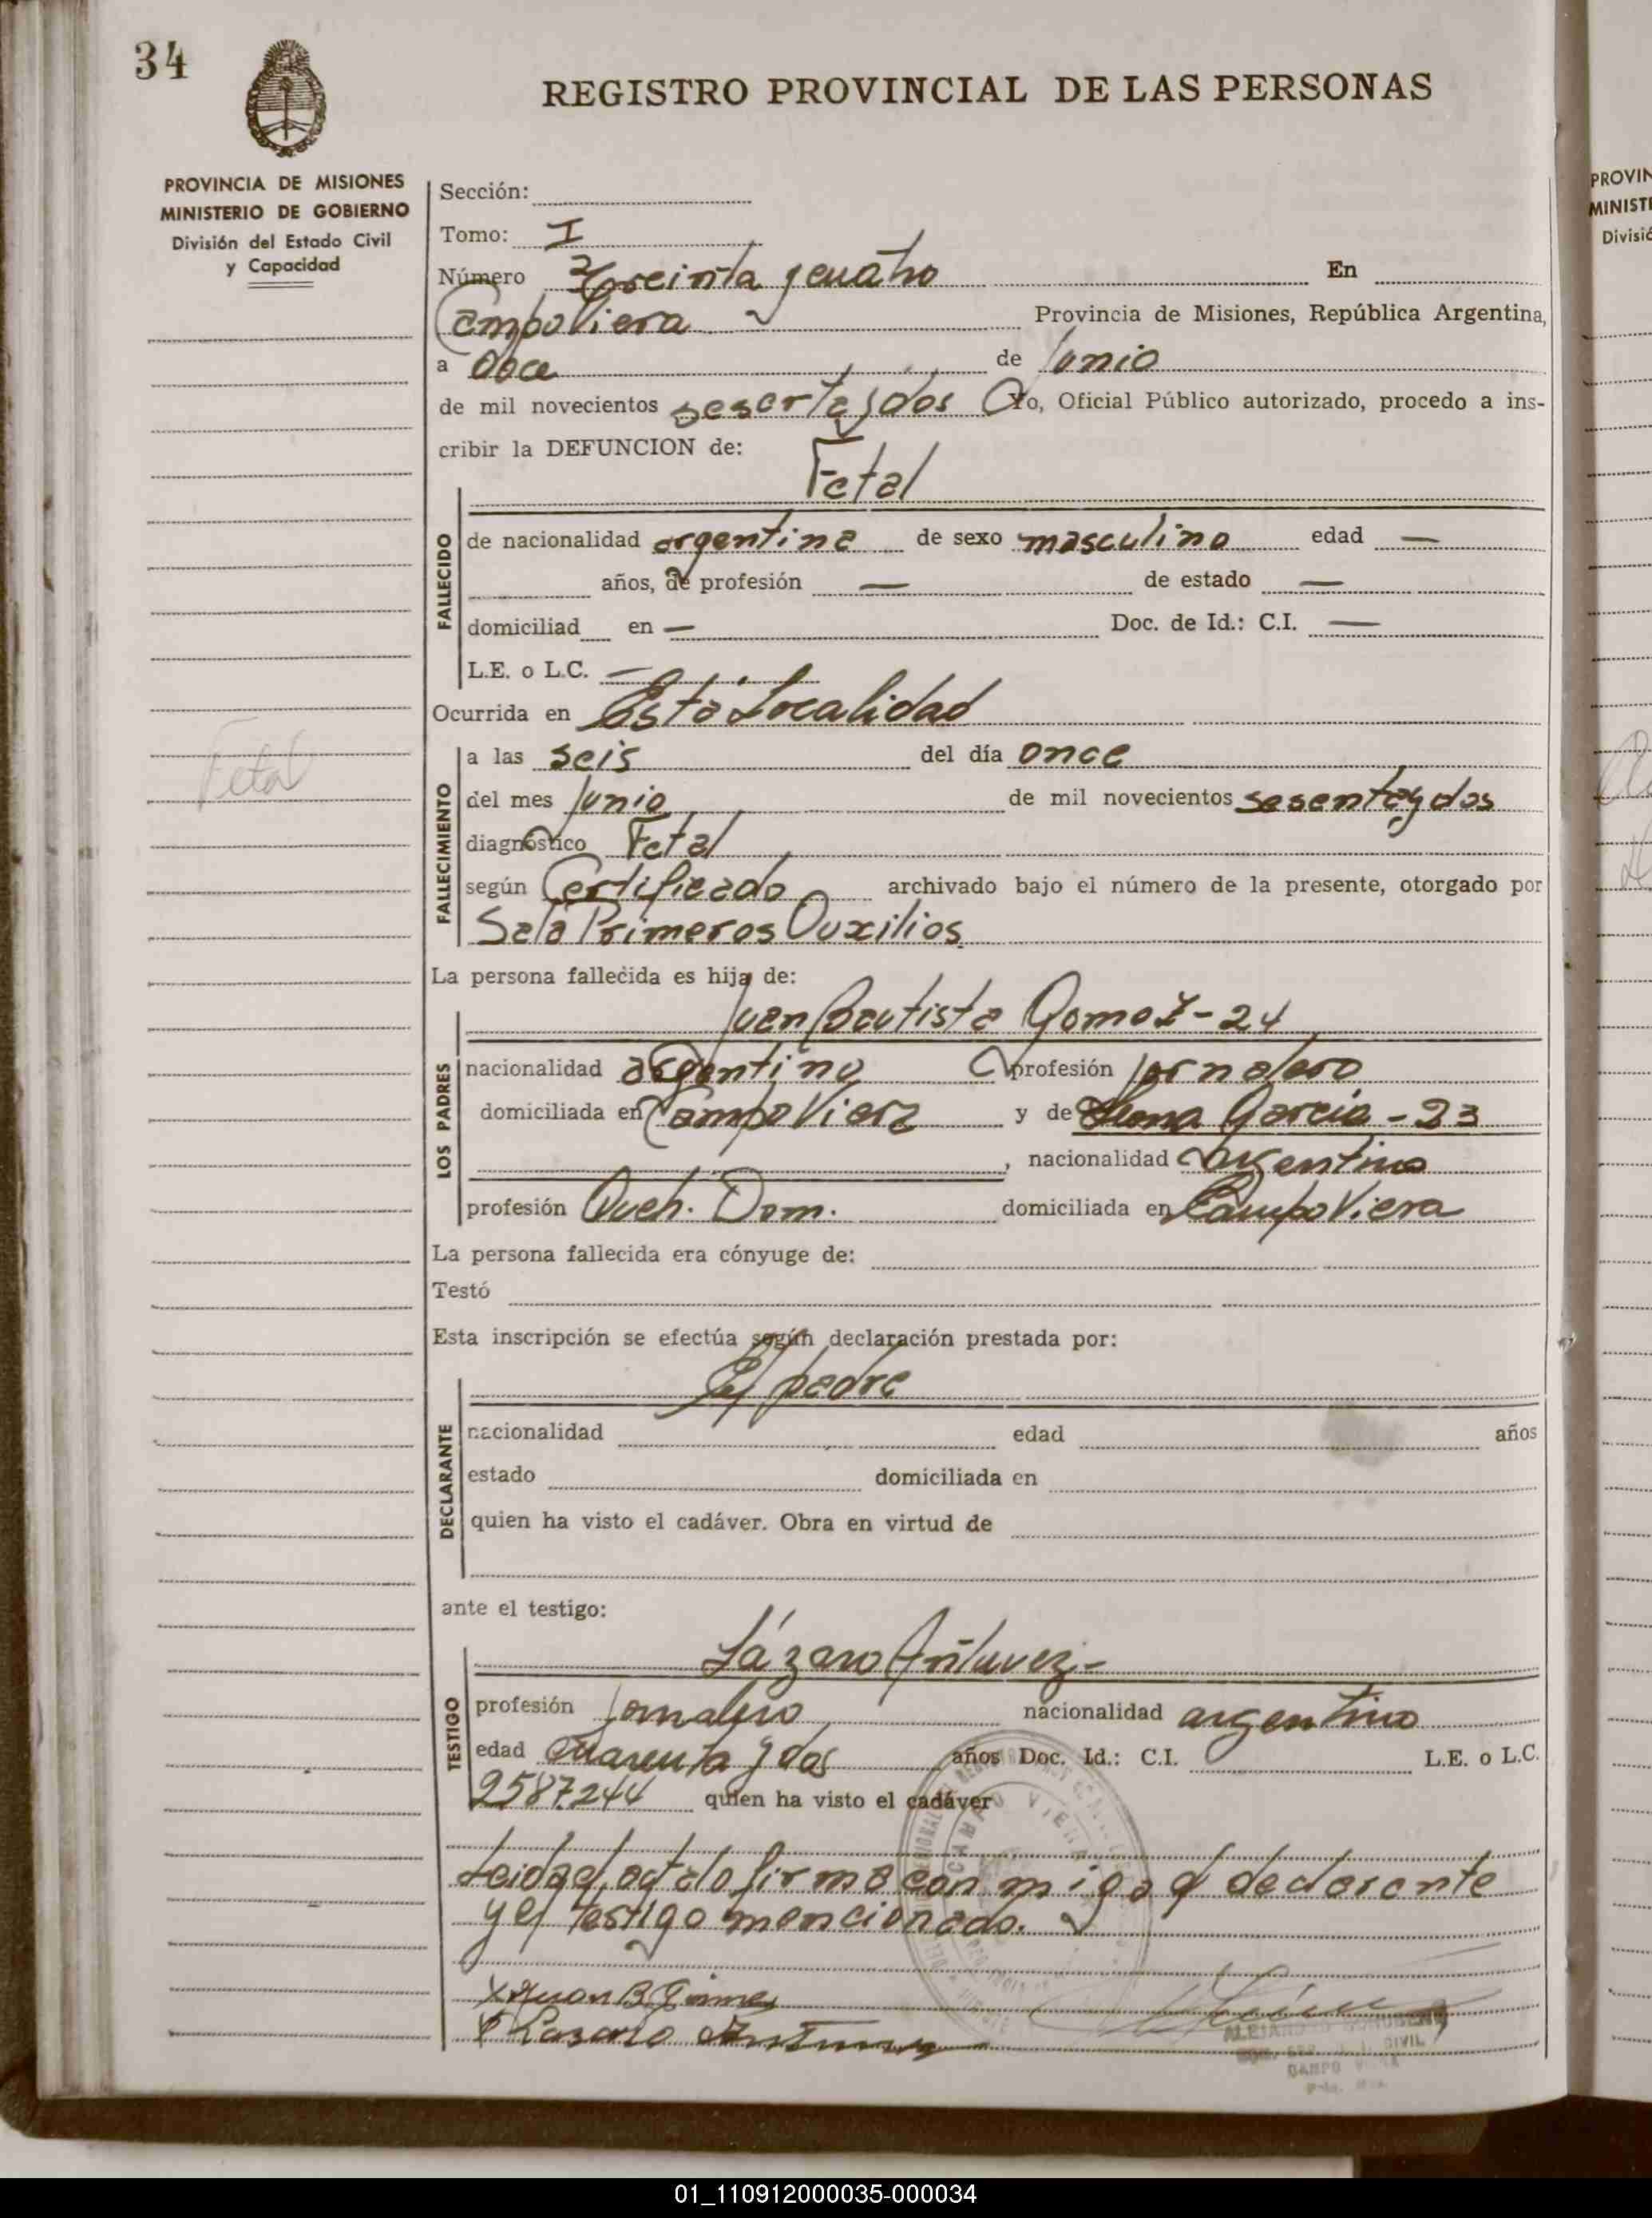 34
REGISTRO PROVINCIAL DE LAS PERSONAS
PROVINCIA DE MISIONES
MINISTERIO DE GOBIERNO
División del Estado Civil
y Capacidad
Sección:
Tomo: I
Número Treinta y cuatro En
Campo Viera Provincia de Misiones, República Argentina,
a Doce de Junio
de mil novecientos sesenta y dos Yo, Oficial Público autorizado, procedo a ins-
cribir la DEFUNCION de:
Fetal
FALLECIDO
de nacionalidad argentina de sexo masculino edad —
años, de profesión — de estado —
domiciliad en — Doc. de Id.: C.I. —
L.E. o L.C. —
Ocurrida en Esta Localidad
Fetal
FALLECIMIENTO
a las seis del día once
del mes Junio de mil novecientos sesenta y dos
diagnóstico Fetal
según Certificado archivado bajo el número de la presente, otorgado por
Sala Primeros Auxilios
La persona fallecida es hija de:
LOS PADRES
Juan Bautista Gomez - 24
nacionalidad argentino profesión jornalero
domiciliada en Campo Viera y de Garcia - 23
, nacionalidad argentina
profesión Queh. Dom. domiciliada en Campo Viera
La persona fallecida era cónyuge de:
Testó
Esta inscripción se efectúa según declaración prestada por:
DECLARANTE
El padre
nacionalidad edad años
estado domiciliada en
quien ha visto el cadáver. Obra en virtud de
ante el testigo:
TESTIGO
Lázaro
profesión Jornalero nacionalidad argentino
edad cuarenta y dos años Doc. Id.: C.I. L.E. o L.C.
2587244 quien ha visto el cadáver
Leida el acta lo firma con migo el declarante
y el testigo mencionado.
Juan B Gomez
Lazaro
CAMPO VIERA
CIVIL
CAMPO
PROVIN
MINISTE
Divisió
01_110912000035-000034